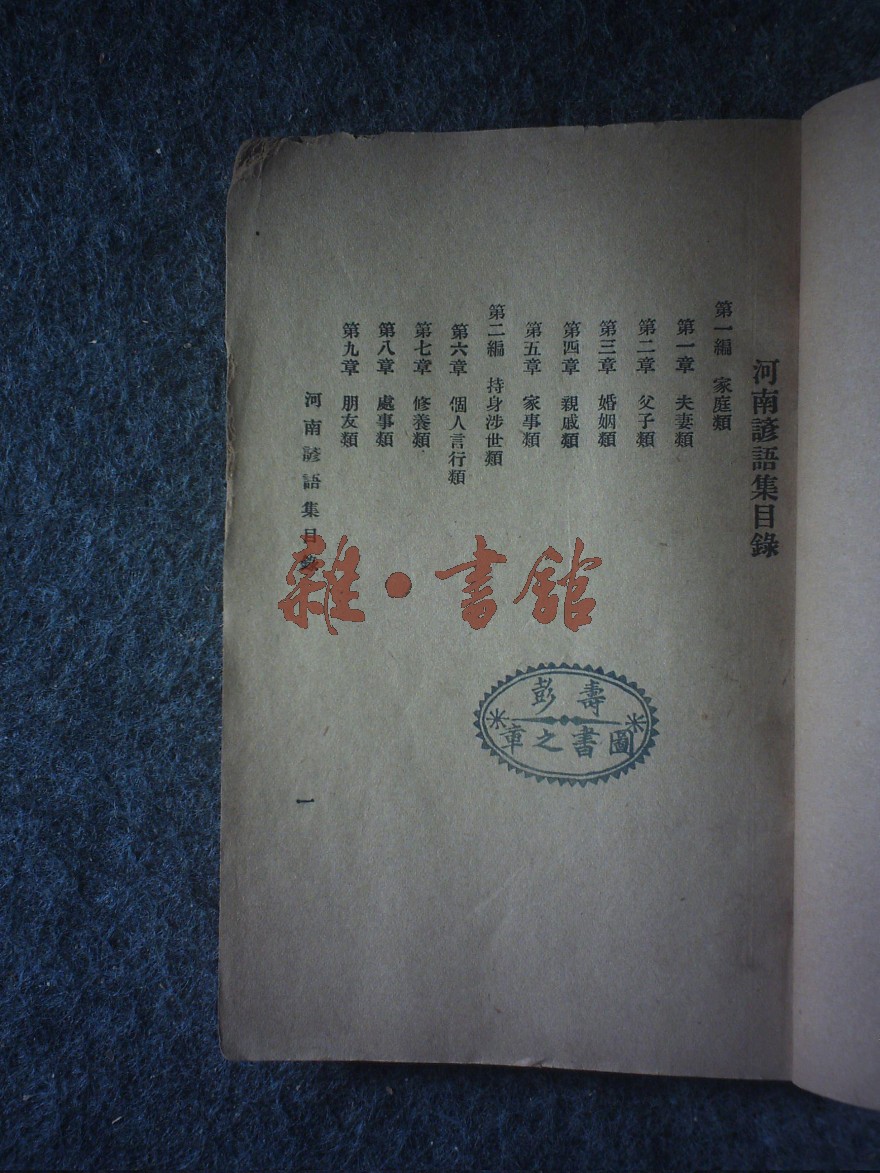 河南諺語集目錄
第一編 家庭類
第一章 夫妻類
第二章 父子類
第三章 婚姻類
第四章 親戚類
第五章 家事類
第二編 持身涉世類
第六章 個人言行類
第七章 修養類
第八章 處事類
第九章 朋友類
河南諺語集目錄
一
雜·書館
壽彭
圖書之章